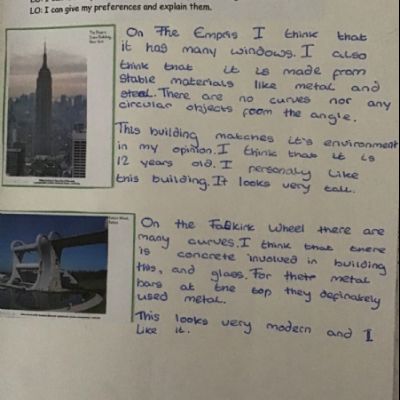 LO: I can give my preferences and explain them.
On The Empris I think that
it has many windows. I also
think that it is made from
stable materials like metal and
steel. There are no curves nor any
circular objects from the angle.
This building matches it's environment
in my opinion. I think that it is
12 years old. I personaly like
this building. It looks very tall.
On the Falkirk Wheel there are
many curves. I think that there
is concrete involved in building
this, and glass. For the metal
bars at the top they definately
used metal.
This looks very modern and I
like it.